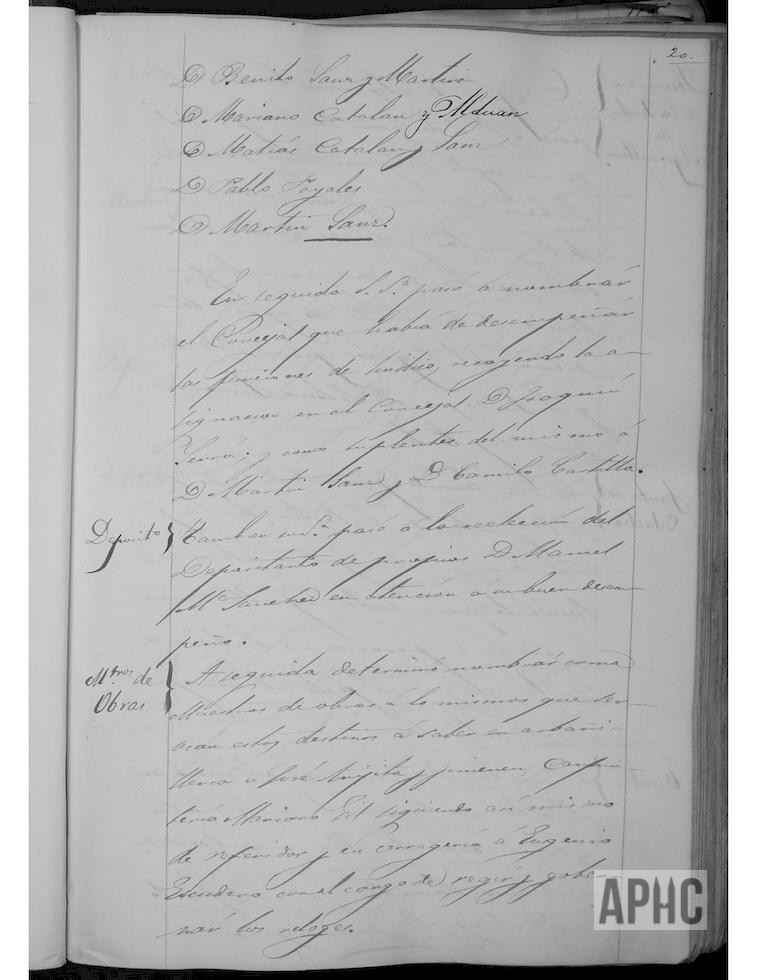 20.
D Benito Sanz y Martinez
D Mariano Catalan y Alduan
D Matias Catalan y Sanz
D Pablo Foyales
D Martin Sanz.
En seguida S. Sª pasó á nombrar
el Concejal que habia de desempeñar
las funciones de Sindico, recayendo la a-
signacion en el Concejal D Joaquin
y como suplentes del mismo á
D Martin Sanz y D Camilo Castillo.
Deposito } Tambien su Sª pasó á la reeleccion del
Depositario de propios D Manuel
Mª Sanchez en atencion á su buen desem-
peño.
Mtros de
Obras } A seguida determinó nombrar como
Maestros de obras á lo mismos que ser-
vian estos destinos á saber en arbañi-
lleria a José y Jimenez, Carpin
teria Mariano Gil siguiendo asi mismo
de referidos y en cerrageria á Eugenio
Escudero con el cargo de regir y gober-
nar los reloges.
APHC